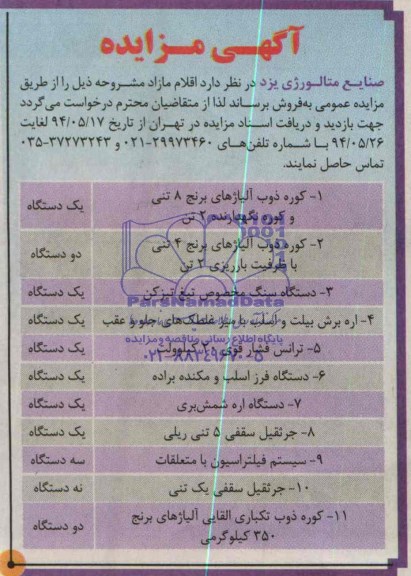 آگهی مزایده
صنایع متالورژی یزد در نظر دارد اقلام مازاد مشروحه ذیل را از طریق
مزایده عمومی به‌فروش برساند لذا از متقاضیان محترم درخواست می‌گردد
جهت بازدید و دریافت اسناد مزایده در تهران از تاریخ ۹۴/۰۵/۱۷ لغایت
۹۴/۰۵/۲۶ با شماره تلفن‌های ۲۹۹۷۳۴۶۰-۰۲۱ و ۳۷۲۷۳۲۴۳-۰۳۵
تماس حاصل نمایند.
۱- کوره ذوب آلیاژهای برنج ۸ تنی
و کوره نگهدارنده ۲ تن
یک دستگاه
۲- کوره ذوب آلیاژهای برنج ۴ تنی
با ظرفیت بارریزی ۲ تن
دو دستگاه
۳- دستگاه سنگ مخصوص تیغ تیزکن
یک دستگاه
۴- اره برش بیلت و اسلب با میز غلطک‌های جلو و عقب
یک دستگاه
۵- ترانس فشار قوی ۲۰ کیلوولت
یک دستگاه
۶- دستگاه فرز اسلب و مکنده براده
یک دستگاه
۷- دستگاه اره شمش‌بری
یک دستگاه
۸- جرثقیل سقفی ۵ تنی ریلی
یک دستگاه
۹- سیستم فیلتراسیون با متعلقات
سه دستگاه
۱۰- جرثقیل سقفی یک تنی
نه دستگاه
۱۱- کوره ذوب تکباری القایی آلیاژهای برنج
۳۵۰ کیلوگرمی
دو دستگاه
ParsNamadData
پایگاه اطلاع رسانی مناقصه و مزایده